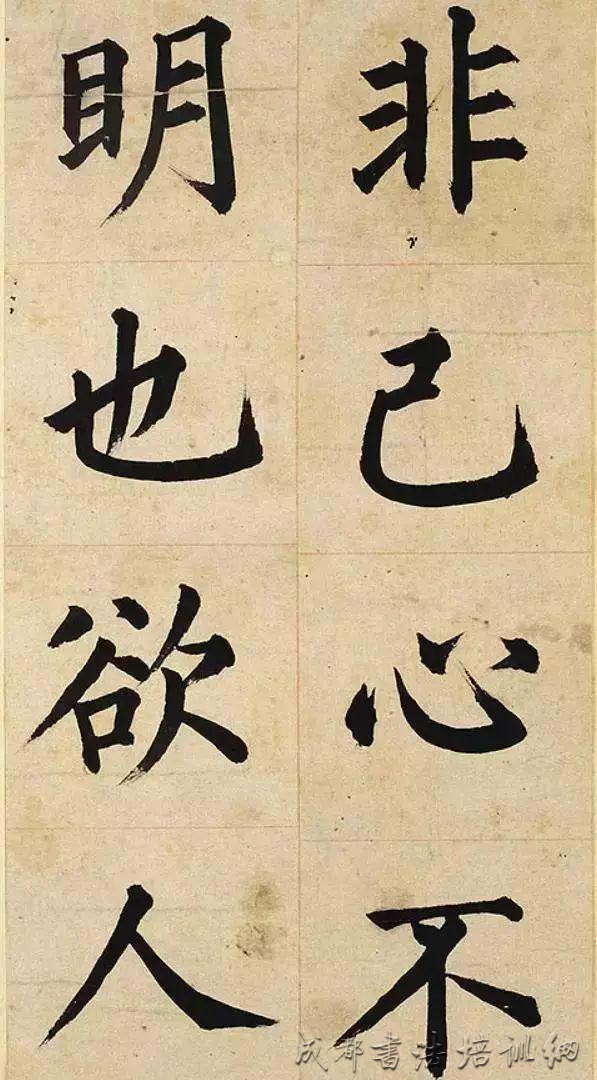 非己心不
明也欲人
成都书法培训网